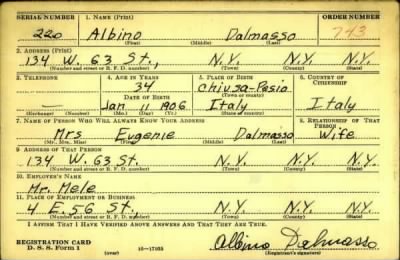 SERIAL NUMBER 1. NAME (Print) ORDER NUMBER
220 Albino Dalmasso 743
(First) (Middle) (Last)
2. ADDRESS (Print)
134 W. 63 St., N.Y. N.Y.
(Number and street or R. F. D. number) (Town) (County) (State)
3. TELEPHONE 4. AGE IN YEARS 5. PLACE OF BIRTH 6. COUNTRY OF CITIZENSHIP
34 Chiusa-Pesio
DATE OF BIRTH (Town or county)
— Jan 11 1906 Italy Italy
(Exchange) (Number) (Mo.) (Day) (Yr.) (State or country)
7. NAME OF PERSON WHO WILL ALWAYS KNOW YOUR ADDRESS 8. RELATIONSHIP OF THAT PERSON
Mrs Eugenie Dalmasso Wife
(Mr., Mrs., Miss) (First) (Middle) (Last)
9. ADDRESS OF THAT PERSON
134 W. 63 St. N.Y. N.Y. N.Y.
(Number and street or R. F. D. number) (Town) (County) (State)
10. EMPLOYER'S NAME
Mr. Mele
11. PLACE OF EMPLOYMENT OR BUSINESS
4 E. 56 St. N.Y. N.Y. N.Y.
(Number and street or R. F. D. number) (Town) (County) (State)
I AFFIRM THAT I HAVE VERIFIED ABOVE ANSWERS AND THAT THEY ARE TRUE.
REGISTRATION CARD
D. S. S. Form 1 (over) 16—17105 Albino Dalmasso
(Registrant's signature)